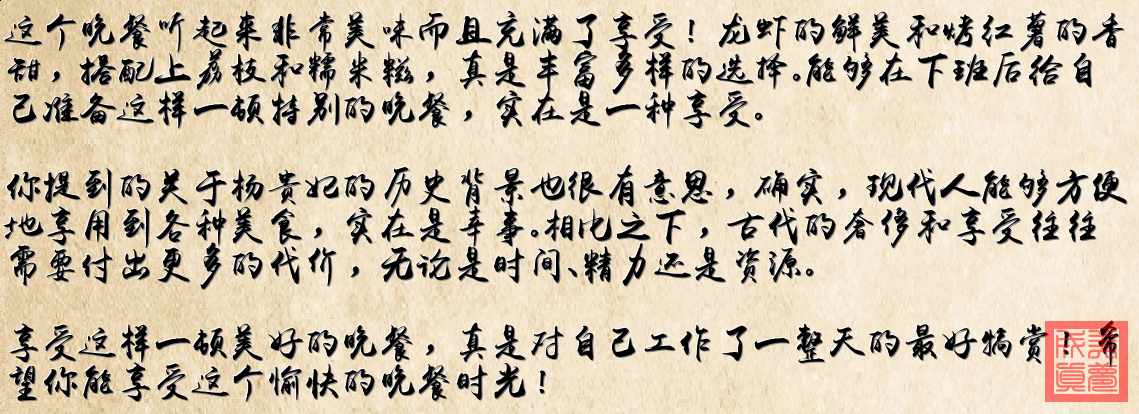 这个晚餐听起来非常美味而且充满了享受！龙虾的鲜美和烤红薯的香
甜，搭配上荔枝和糯米糍，真是丰富多样的选择。能够在下班后给自
己准备这样一顿特别的晚餐，实在是一种享受。
你提到的关于杨贵妃的历史背景也很有意思，确实，现代人能够方便
地享用到各种美食，实在是幸事。相比之下，古代的奢侈和享受往往
需要付出更多的代价，无论是时间、精力还是资源。
享受这样一顿美好的晚餐，真是对自己工作了一整天的最好犒赏！希
望你能享受这个愉快的晚餐时光！